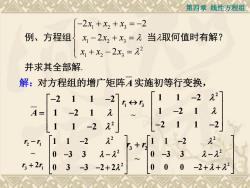 第四章 线性方程组
例、方程组 { -2x₁ + x₂ + x₃ = -2
x₁ - 2x₂ + x₃ = λ
x₁ + x₂ - 2x₃ = λ²
当λ取何值时有解?
并求其全部解.
解: 对方程组的增广矩阵 A̅ 实施初等行变换,
A̅ = [ -2 1 1 -2
1 -2 1 λ
1 1 -2 λ² ]
r₁ ↔ r₃
~
[ 1 1 -2 λ²
1 -2 1 λ
-2 1 1 -2 ]
r₂ - r₁
~
r₃ + 2r₁
[ 1 1 -2 λ²
0 -3 3 λ-λ²
0 3 -3 -2+2λ² ]
r₃ + r₂
~
[ 1 1 -2 λ²
0 -3 3 λ-λ²
0 0 0 -2+λ+λ² ]